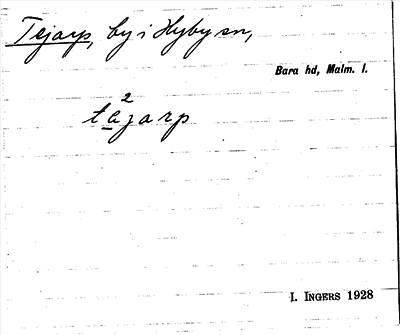 Tejarp, by i Hyby sn,
Bara hd, Malm. l.
2
tajarp
I. INGERS 1928